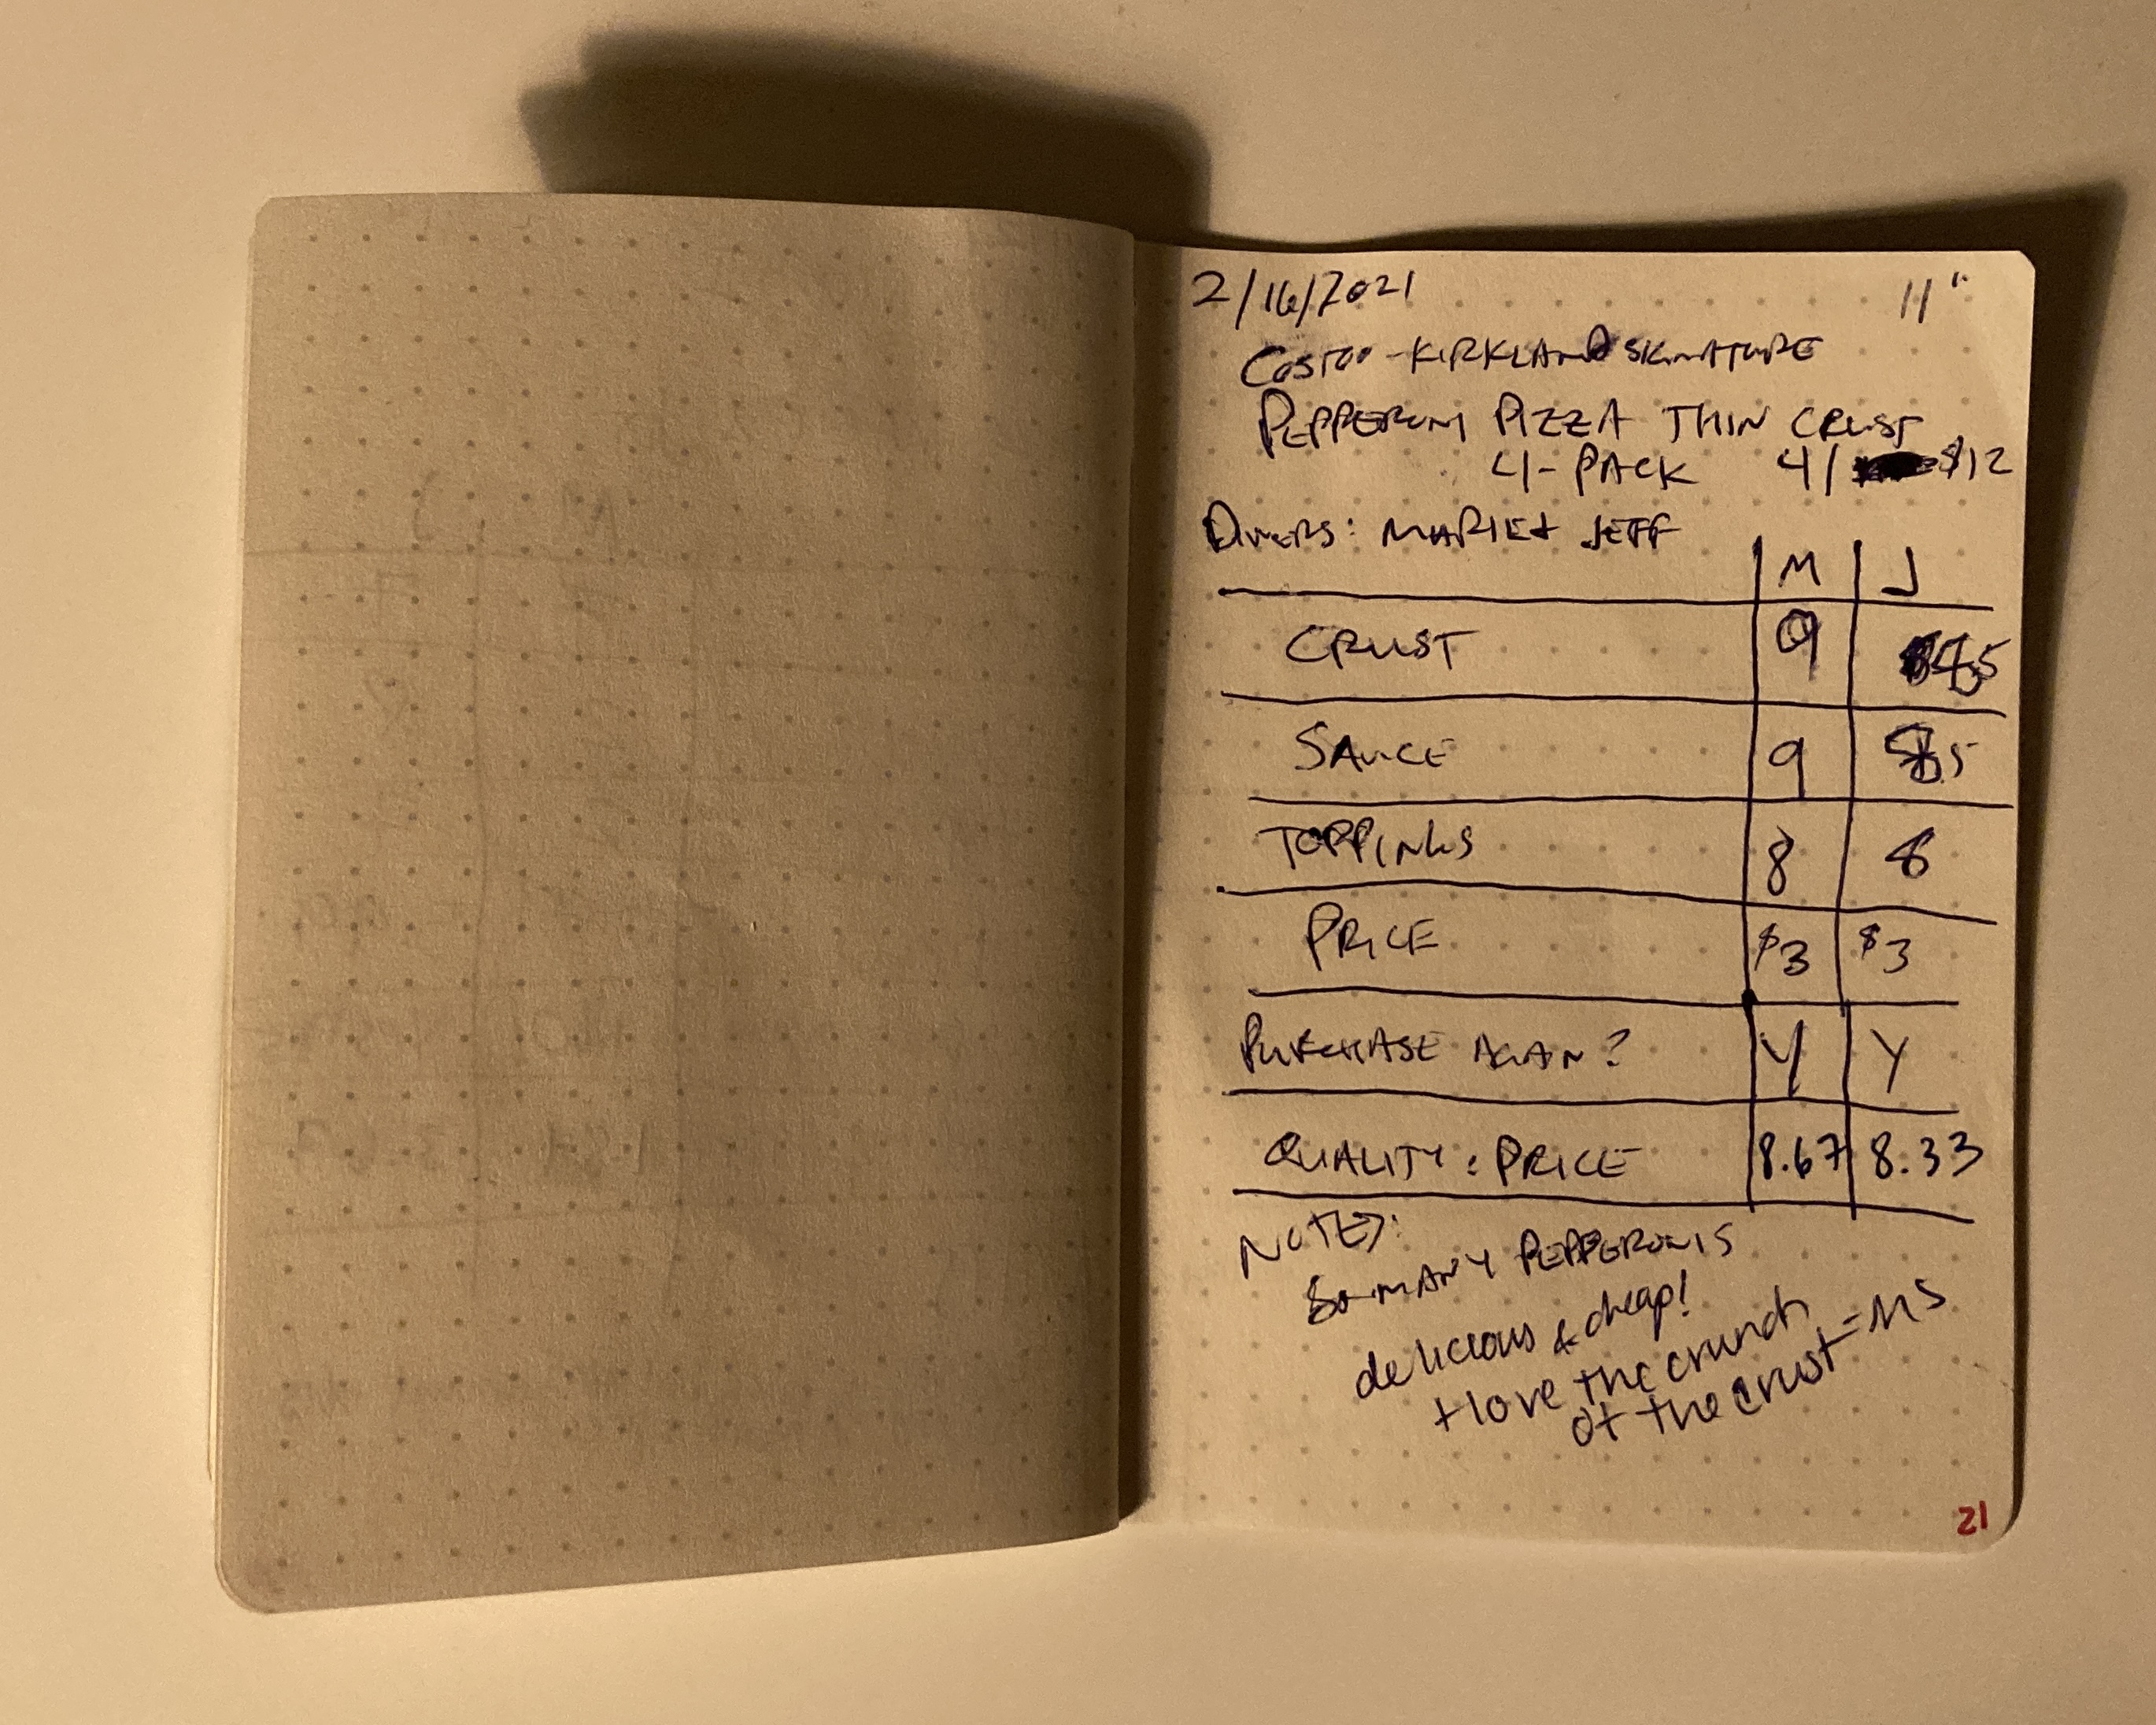 2/16/2021 11"
COSTCO - KIRKLAND SIGNATURE
PEPPERONI PIZZA THIN CRUST
4-PACK 4/ $12
DINERS: MARIE + JEFF
M J
CRUST 9
SAUCE 9
TOPPINGS 8 8
PRICE $3 $3
PURCHASE AGAIN? Y Y
QUALITY : PRICE 8.67 8.33
NOTES:
SO MANY PEPPERONIS
delicious & cheap!
+ love the crunch
of the crust - MS
21